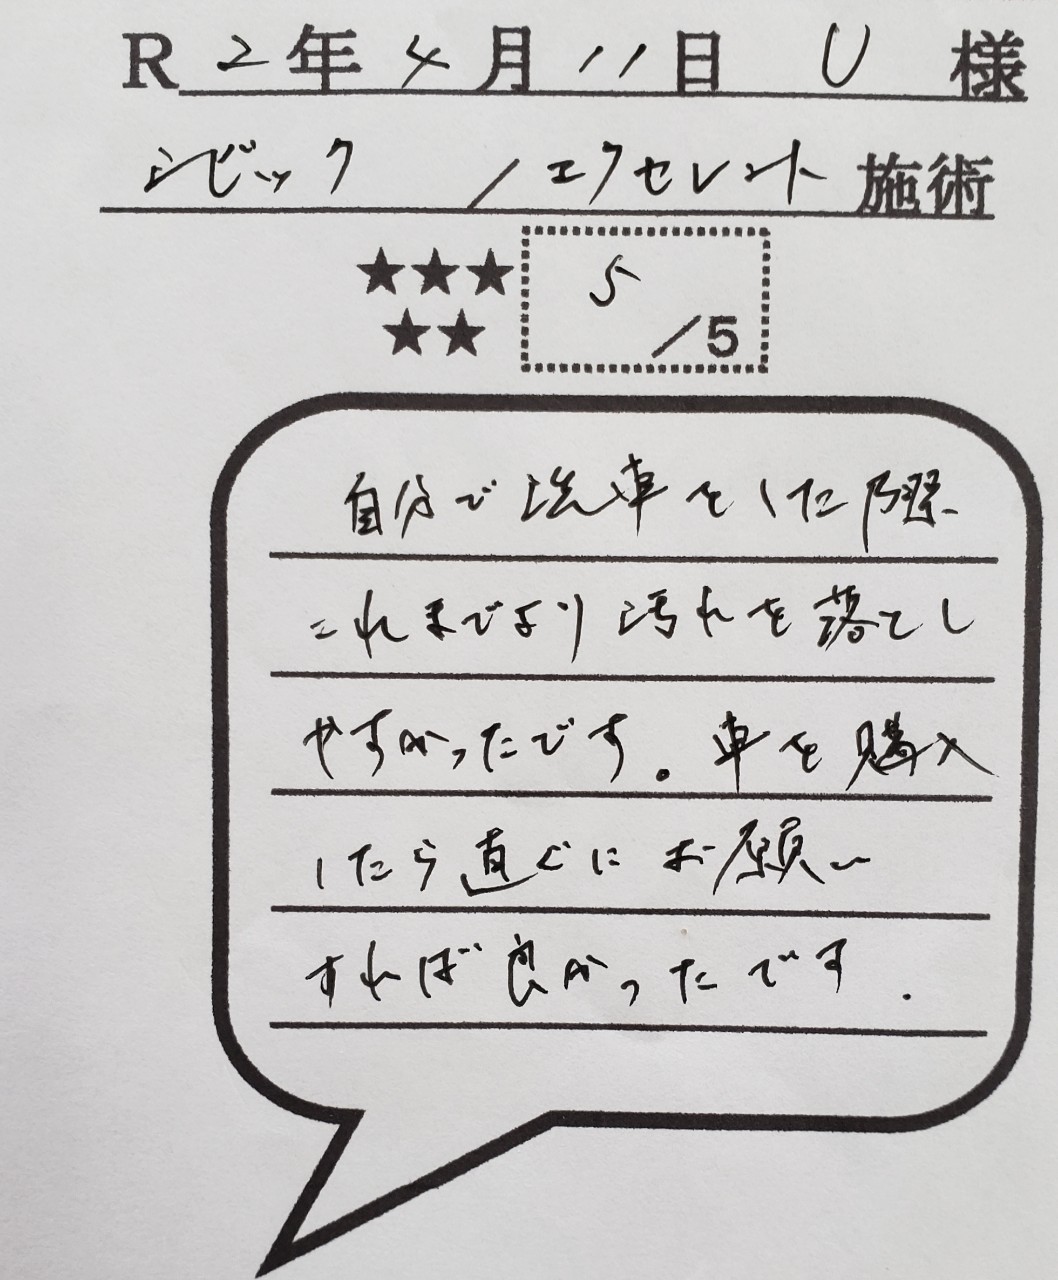 R 2年 4月 11日 U 様
シビック / エクセレント 施術
★★★ 5
★★ /5
自分で洗車をした際、
これまでより汚れを落とし
やすかったです。車を購入
したら直ぐにお願い
すれば良かったです.